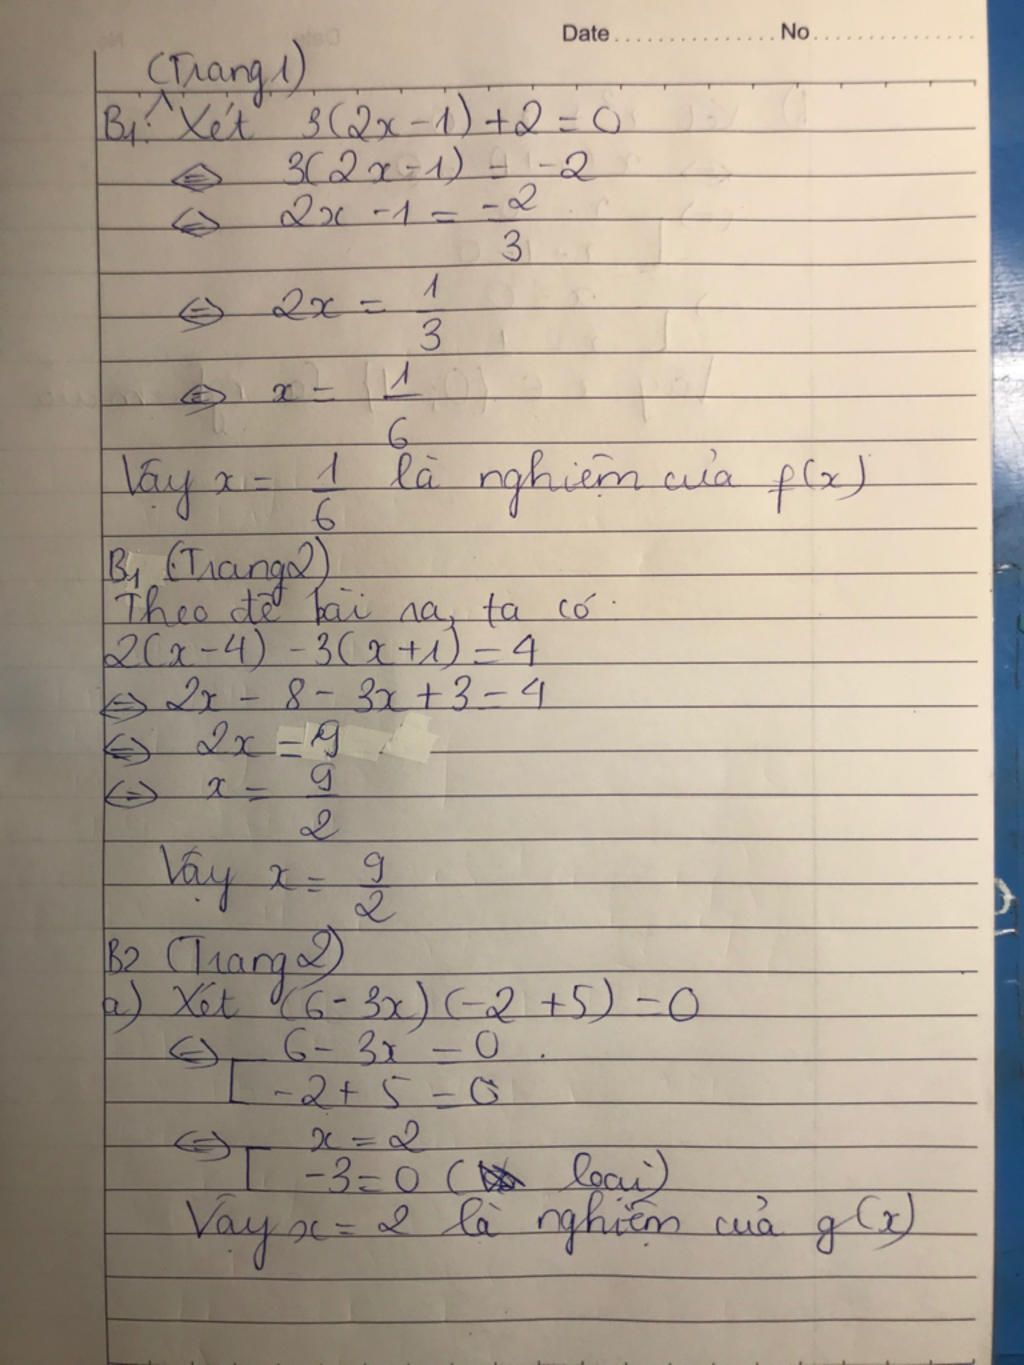 Date ................ No ................
(Trang 1)
B1: Xét 3(2x-1)+2=0
⇔ 3(2x-1) = -2
⇔ 2x -1 = -2/3
⇔ 2x = 1/3
⇔ x = 1/6
Vậy x = 1/6 là nghiệm của f(x)
B1 (Trang 2)
Theo đề bài ra, ta có
2(x-4) -3(x+1) = 4
⇔ 2x - 8 - 3x + 3 = 4
⇔ 2x = 9
⇔ x = 9/2
Vậy x = 9/2
B2 (Trang 2)
a) Xét (6-3x)(-2+5) = 0
⇔ [ 6 - 3x = 0
-2 + 5 = 0
⇔ [ x = 2
-3 = 0 ( loại)
Vậy x = 2 là nghiệm của g(x)